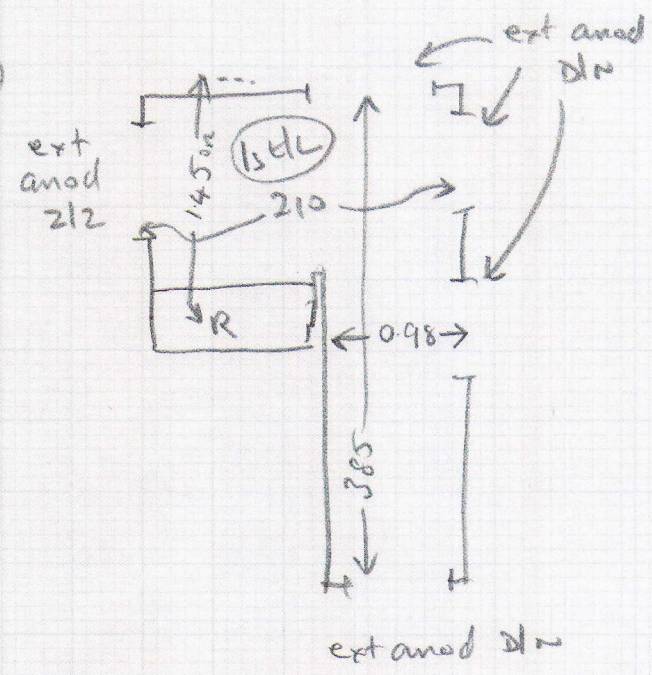 ext anod
D/N
ext
anod
2/2
1.45
1st/L
210
R
0.98
385
ext anod D/N